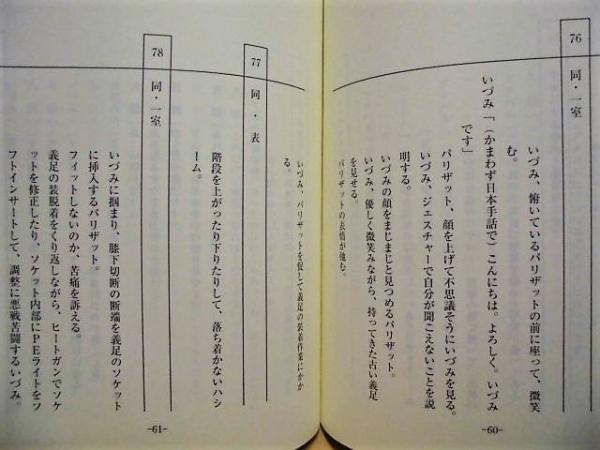 76 同・一室
いづみ、俯いているパリザットの前に座って、微笑
む。
いづみ「(かまわず日本手話で)こんにちは。よろしく。いづみ
です」
パリザット、顔を上げて不思議そうにいづみを見る。
いづみ、ジェスチャーで自分が聞こえないことを説
明する。
いづみの顔をまじまじと見つめるパリザット。
いづみ、優しく微笑みながら、持ってきた古い義足
を見せる。
パリザットの表情が強む。
-60-
いづみ、パリザットを促して義足の装着作業にかか
る。
77 同・表
階段を上がったり下りたりして、落ち着かないハシ
ーム。
78 同・一室
いづみに掴まり、膝下切断の断端を義足のソケット
に挿入するパリザット。
フィットしないのか、苦痛を訴える。
義足の装脱着をくり返しながら、ヒートガンでソケ
ットを修正したり、ソケット内部にPEライトをソ
フトインサートして、調整に悪戦苦闘するいづみ。
-61-